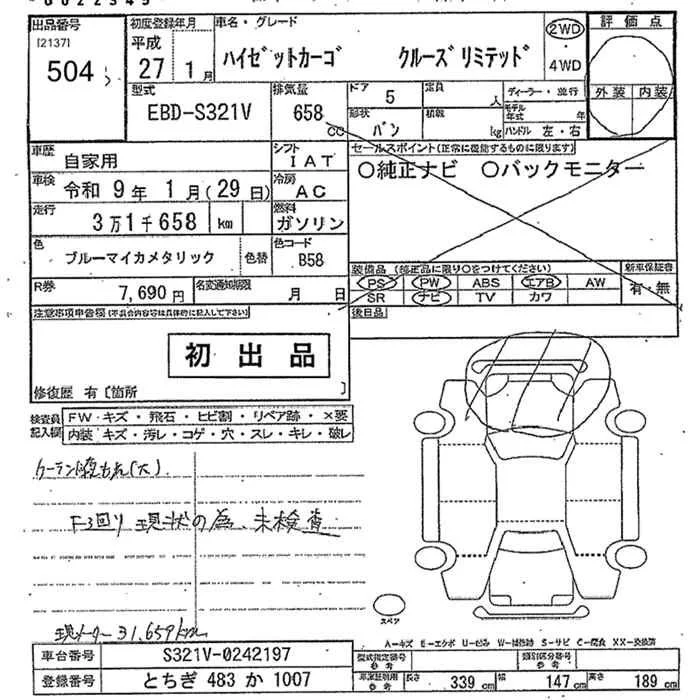 出品番号 初度登録年月 車名・グレード 評価点
[2137] 平成 ハイゼットカーゴ クルーズリミテッド 2WD
504 27年 1月 4WD 外装 内装
型式 排気量 ドア 5 定員 人 ディーラー・並行
EBD-S321V 658 CC 形状 バン 積載 kg モデル年式 年
ハンドル 左・右
車歴 自家用 シフト IAT セールスポイント(正常に機能するものに限ります)
車検 令和 9年 1月(29日) 冷房 AC 〇純正ナビ 〇バックモニター
走行 3万1千658 km 燃料 ガソリン
色 ブルーマイカメタリック 色替 色コード B58
装備品(純正品に限り○をつけてください) 新車保証書
R券 7,690円 名変通知期限 月 日 PS PW ABS エアB AW 有・無
SR ナビ TV カワ
注意事項申告欄(不具合内容等は具体的に記入して下さい) 後日品
初出品
修復歴 有〔箇所 〕
検査員記入欄 FW キズ・飛石・ヒビ割・リペア跡・×要
内装 キズ・汚レ・コゲ・穴・スレ・キレ・破レ
F3回り現状の為、未検査
スペア
現メーター31,659km
A-キズ E-エクボ U-凹ミ W-補修跡 S-サビ C-腐食 XX-交換済
車台番号 S321V-0242197 型式指定番号 参考 類別区分番号 参考
登録番号 とちぎ 483 か 1007 車庫証明用 参考 長さ 339 cm 幅 147 cm 高さ 189 cm